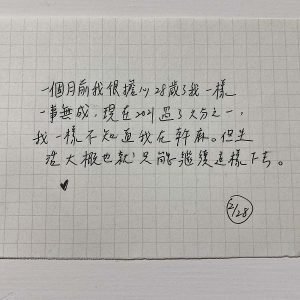 一個月前我很擔心28歲了我一樣
一事無成，現在2021過了六分之一，
我一樣不知道我在幹麻。但生
活大概也就只能繼續這樣下去。
2/28